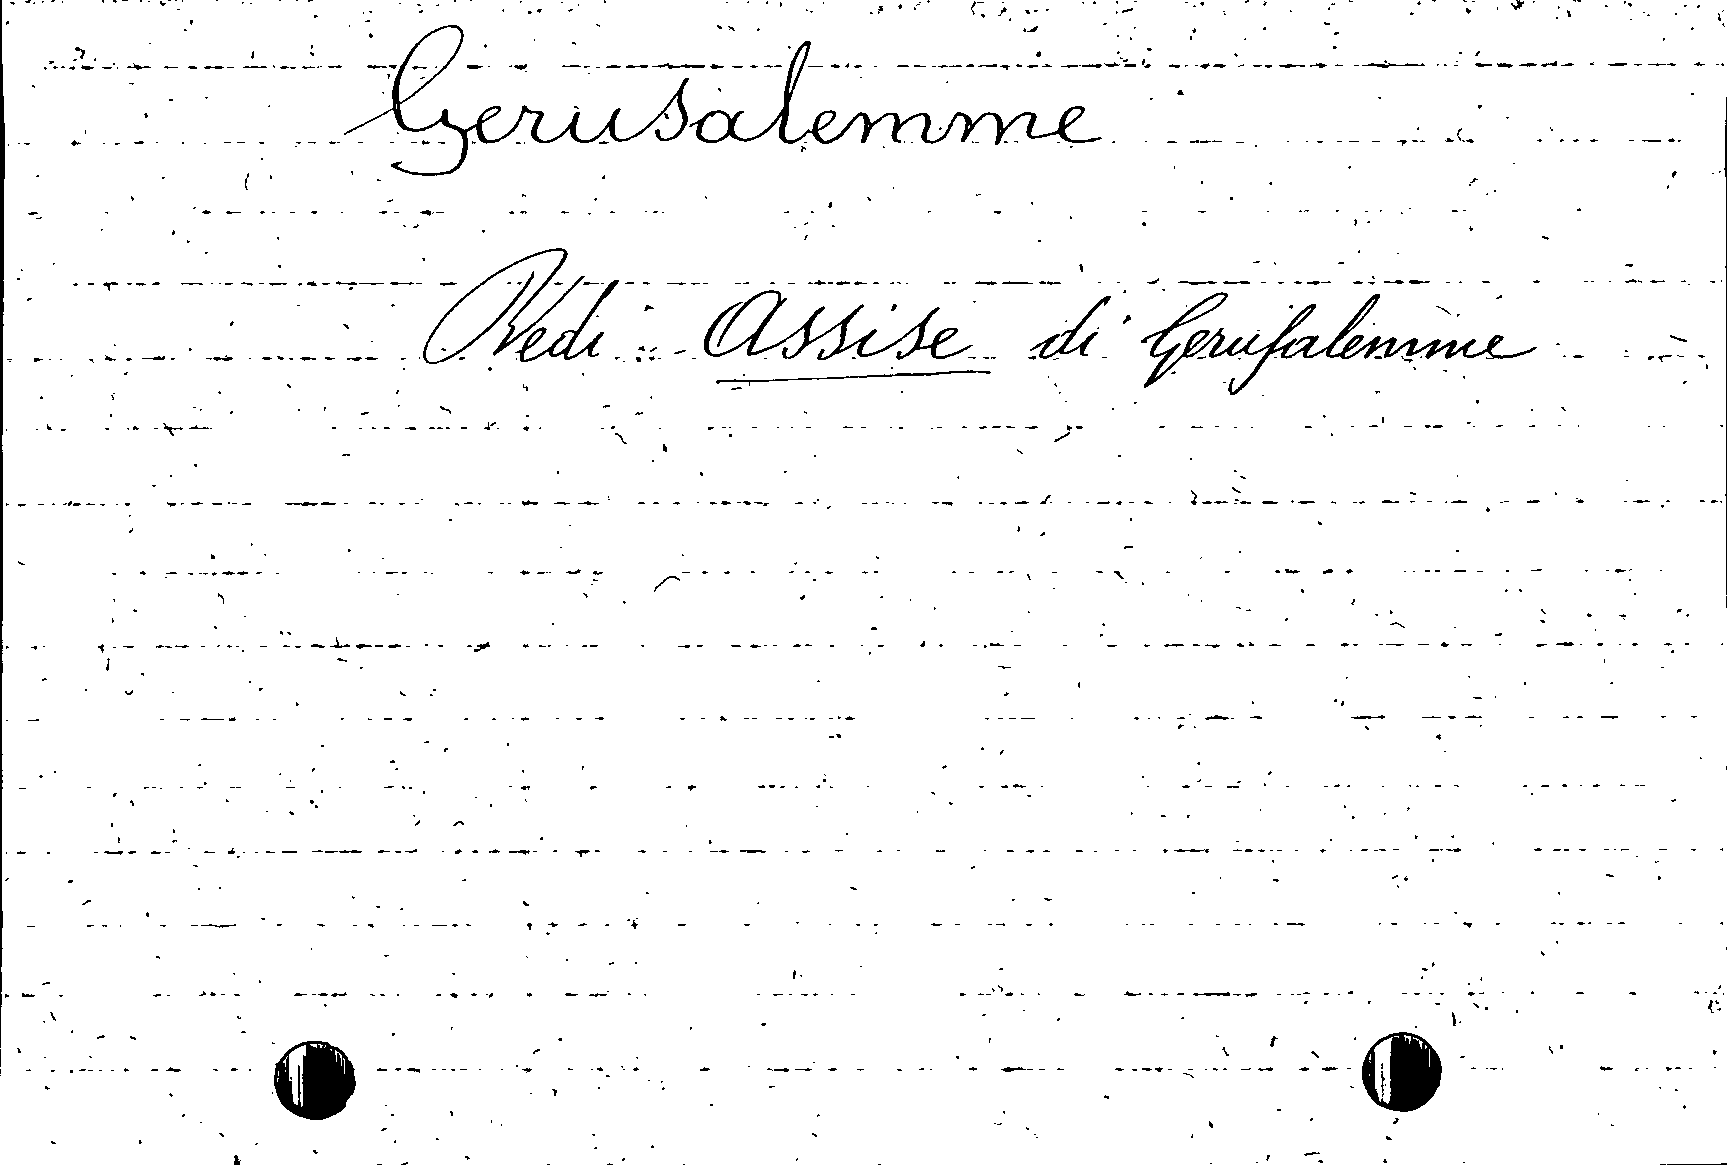 Gerusalemme
Vedi: Assise di Gerusalemme